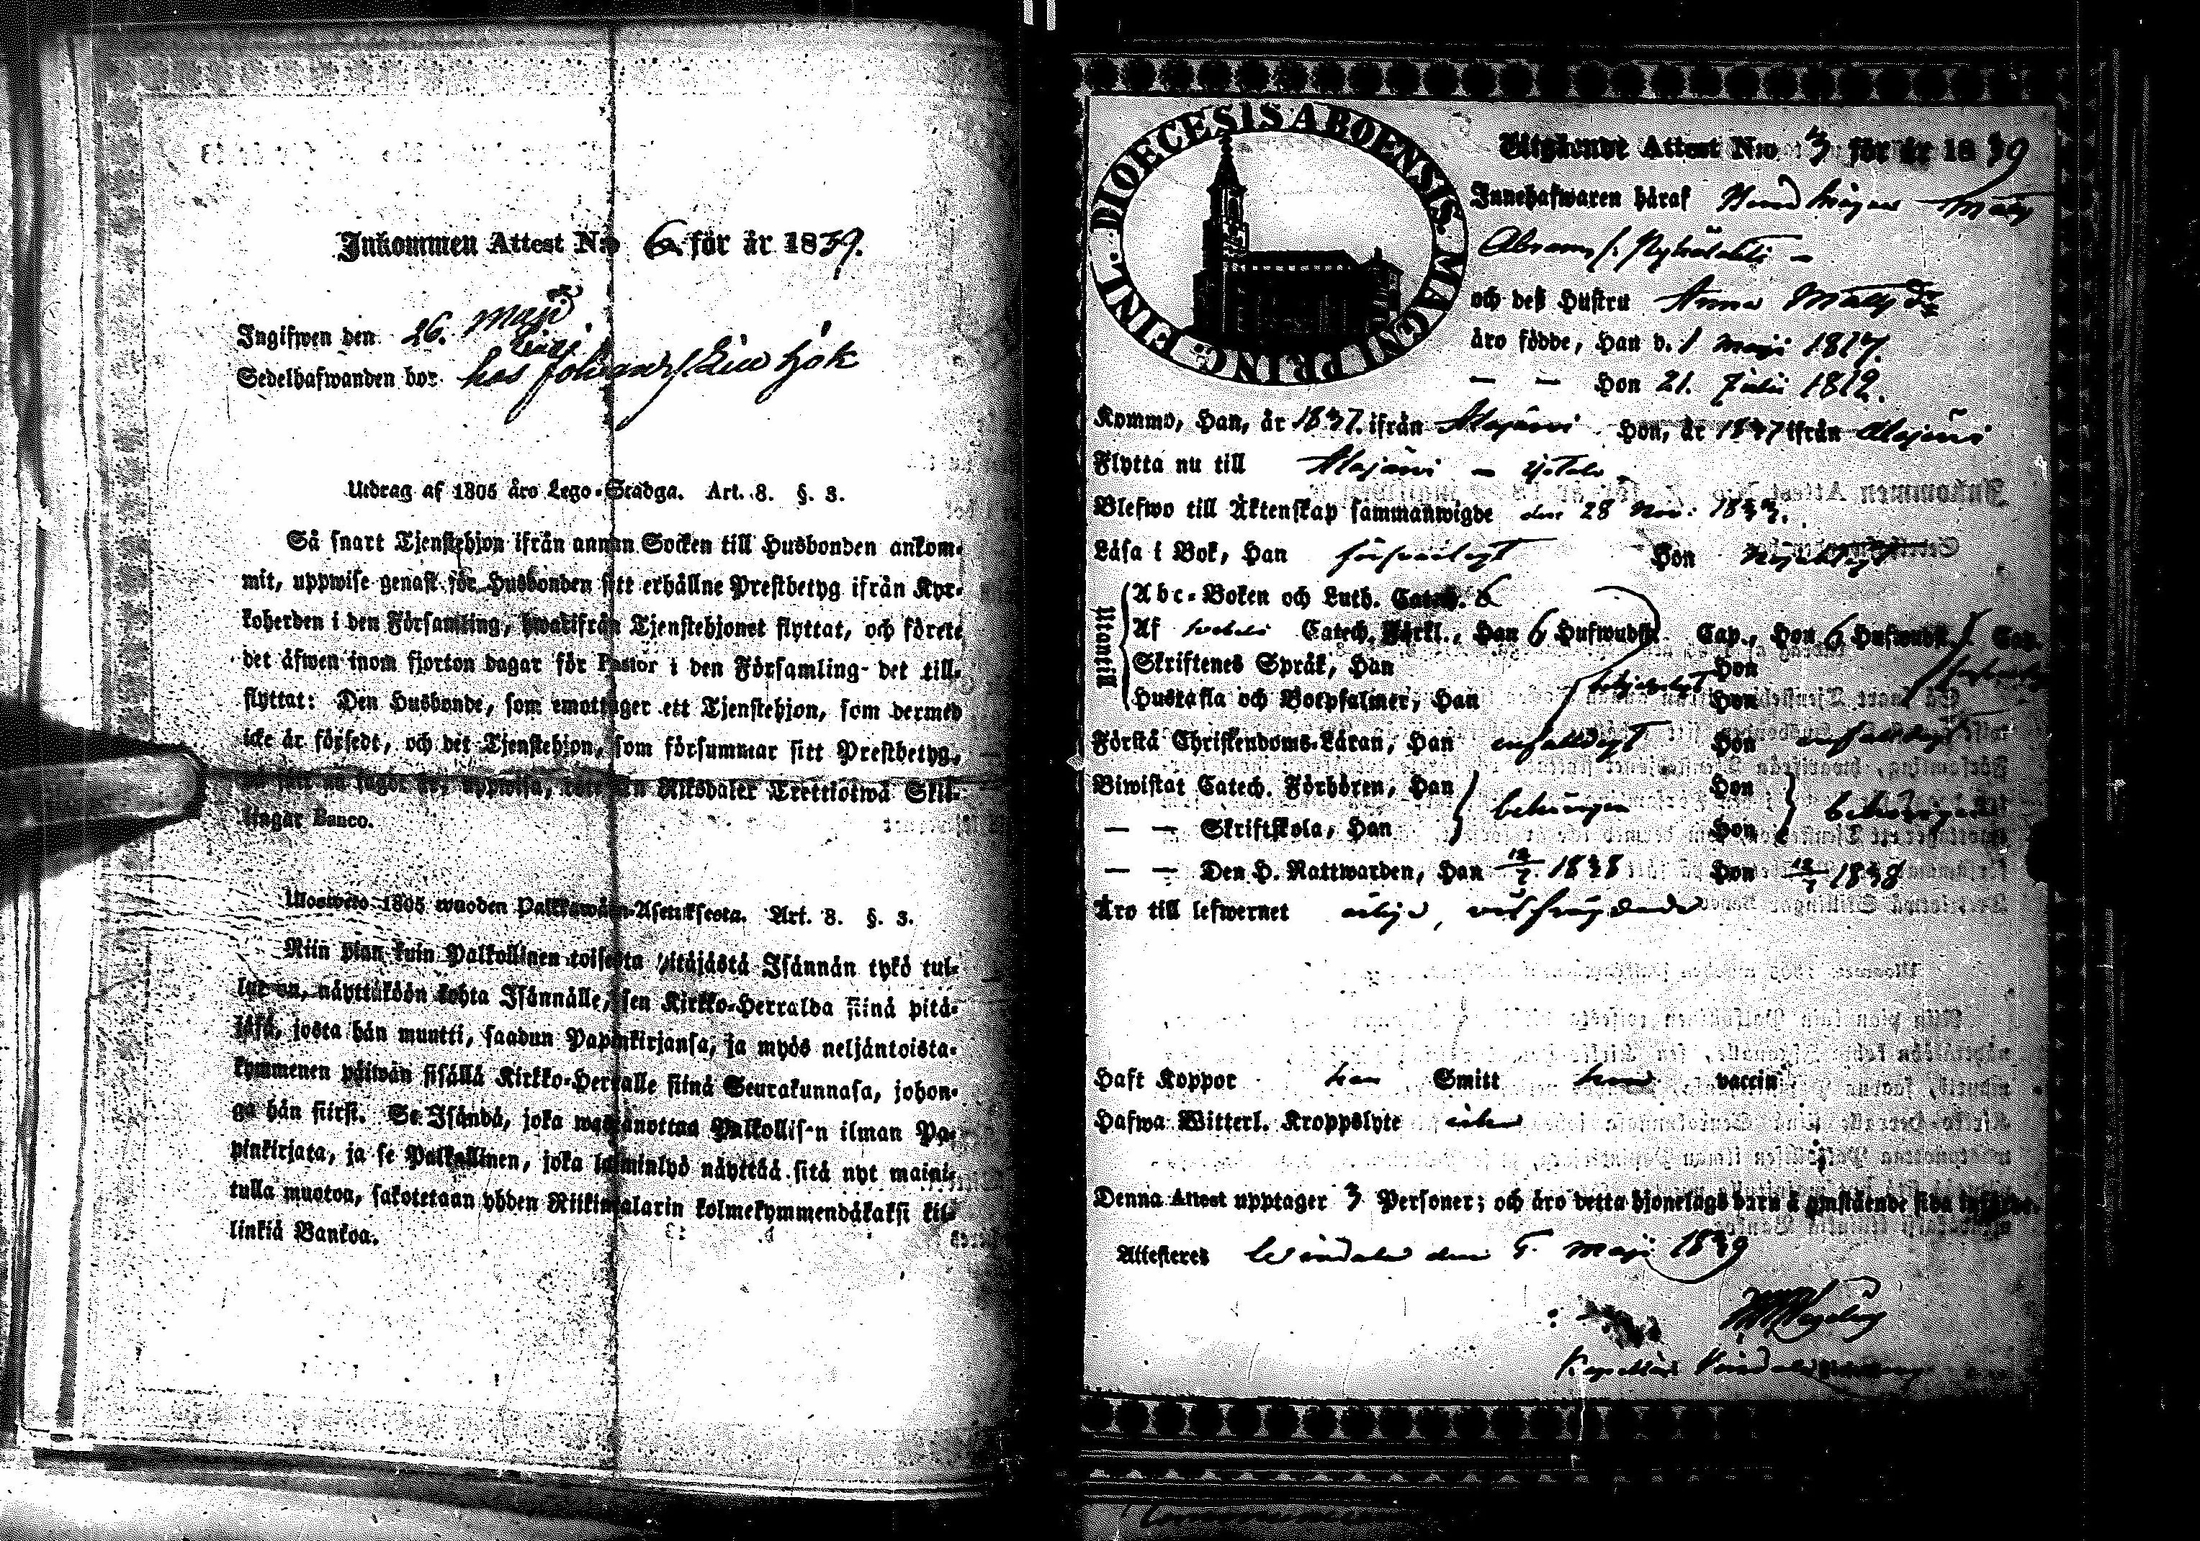 Inkommen Attest N:o 6 för år 1839.
Ingifwen den 26. Maji
Sedelhafwanden bor hos Johan
Utdrag af 1805 åro Lego-Stadga. Art. 8. §. 3.
Så snart Tjenstehjon ifrån annan Socken till Husbonden ankom-
mit, uppwise genast för Husbonden sitt erhållne Prestbetyg ifrån Kyr-
koherden i den Församling, hwarifrån Tjenstehjonet flyttat, och förete
det äfwen inom fjorton dagar för Pastor i den Församling det till-
flyttat: Den Husbonde, som emottager ett Tjenstehjon, som dermed
icke är försedt, och det Tjenstehjon, som försummar sitt Prestbetyg,
på sätt nu sagdt är, uppwisa, böte en Riksdaler Trettiotwå Skil-
lingar Banco.
Wuosiweto 1805 wuoden Palkkawäen-Asetuksesta. Art. 8. §. 3.
Niin pian kuin Palkollinen toisesta Pitäjästä Isännän tykö tul-
lut on, näyttäköön kohta Isännälle, sen Kirkko-Herralda siinä pitä-
jäsä, josta hän muutti, saadun Papinkirjansa, ja myös neljäntoista-
kymmenen päiwän sisällä Kirkko-Herralle siinä Seurakunnasa, johon-
ga hän siirsi. Se Isändä, joka wastanottaa Palkollisen ilman Pa-
pinkirjata, ja se Palkollinen, joka laiminlyö näyttää sitä nyt maini-
tulla muotoa, sakotetaan yhden Riikintalarin kolmekymmendäkaksi kil-
linkiä Bankoa.
DIOECESIS ABOENSIS. MAGNI PRINC. FINL.
Utgående Attest N:o 3 för år 1839
Innehafwaren häraf Maty
Abramss.
och deß Hustru Anna Matsdr
äro födde, Han d. 1 Maji 1817.
— — Hon 21. Julii 1812.
Kommo, Han, år 1837. ifrån Alajärvi Hon, år 1837 ifrån Alajärvi
Flytta nu till Alajärvi –
Blefwo till Äktenskap sammanwigde den 28 Nov. 1837.
Läsa i Bok, Han försvarligt Hon nöjaktigt
Utantill
Abc-Boken och Luth. Catech. 6
Af Catech. Förkl., Han 6 Hufwudst. Cap., Hon 6 Hufwudst. Cap.
Skriftenes Språk, Han Hon
Hustafla och Botpsalmer, Han Hon
Förstå Christendoms-Läran, Han enfaldigt Hon enfaldigt
Biwistat Catech. Förhören, Han behörigen Hon behörigen
— — Skriftskola, Han Hon
— — Den H. Nattwarden, Han 1838 Hon 1838
Äro till lefwernet ärlige, välfrägdade
Haft Koppor han Smitt hon vaccin
Hafwa Witterl. Kroppslyte
Denna Attest upptager 3 Personer; och äro detta hjonelags barn å omstående sida införde.
Attesteres Windala den 5. Maji 1839
Kapellan